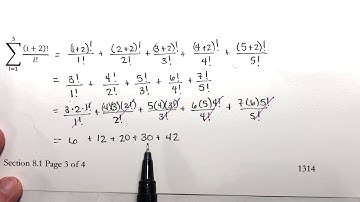 5
∑ (i+2)!/i! = (1+2)!/1! + (2+2)!/2! + (3+2)!/3! + (4+2)!/4! + (5+2)!/5!
i=1
= 3!/1! + 4!/2! + 5!/3! + 6!/4! + 7!/5!
= 3·2·1!/1! + (4)(3)(2!)/2! + 5(4)(3!)/3! + 6(5)4!/4! + 7(6)5!/5!
= 6 + 12 + 20 + 30 + 42
Section 8.1 Page 3 of 4
1314